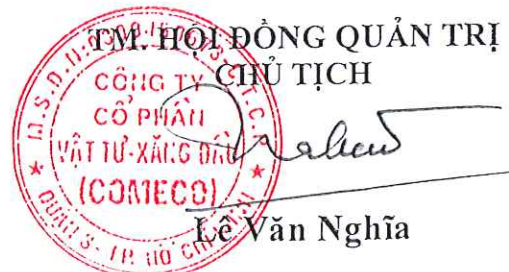 TM. HỘI ĐỒNG QUẢN TRỊ
CHỦ TỊCH
CÔNG TY
CỔ PHẦN
VẬT TƯ-XĂNG DẦU
(COMECO)
QUẬN 3 - TP. HỒ CHÍ MINH
Lê Văn Nghĩa